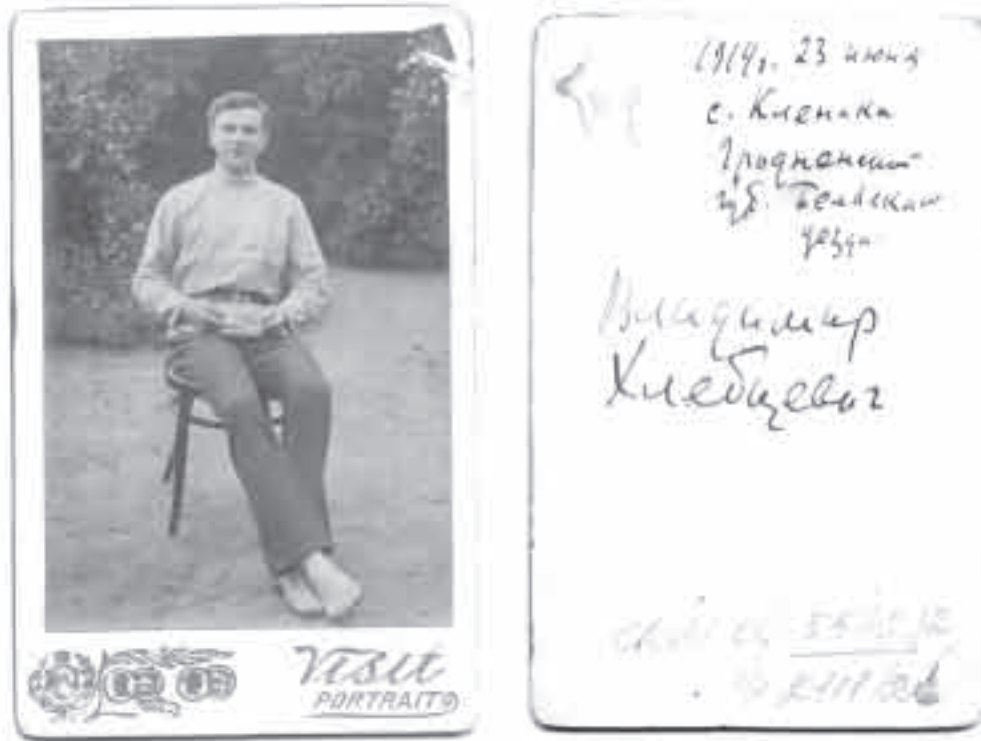 Visit
PORTRAIT
1914г. 23 июня
с. Кленики
Гродненской
губ. Бельского
уезда
Владимир
Хлебцевич